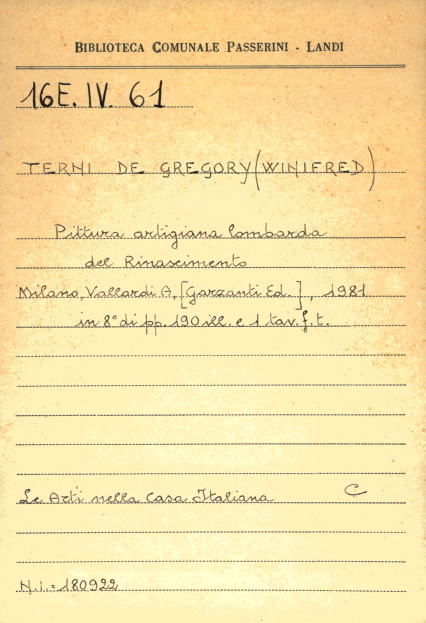 BIBLIOTECA COMUNALE PASSERINI - LANDI
16E. IV. 61
TERNI DE GREGORY (WINIFRED)
Pittura artigiana lombarda
del Rinascimento
Milano, Vallardi A, [Garzanti Ed.], 1981
in 8° di pp. 190 ill. e 1 tav. f. t.
Le Arti nella Casa Italiana C
N.i. = 180922